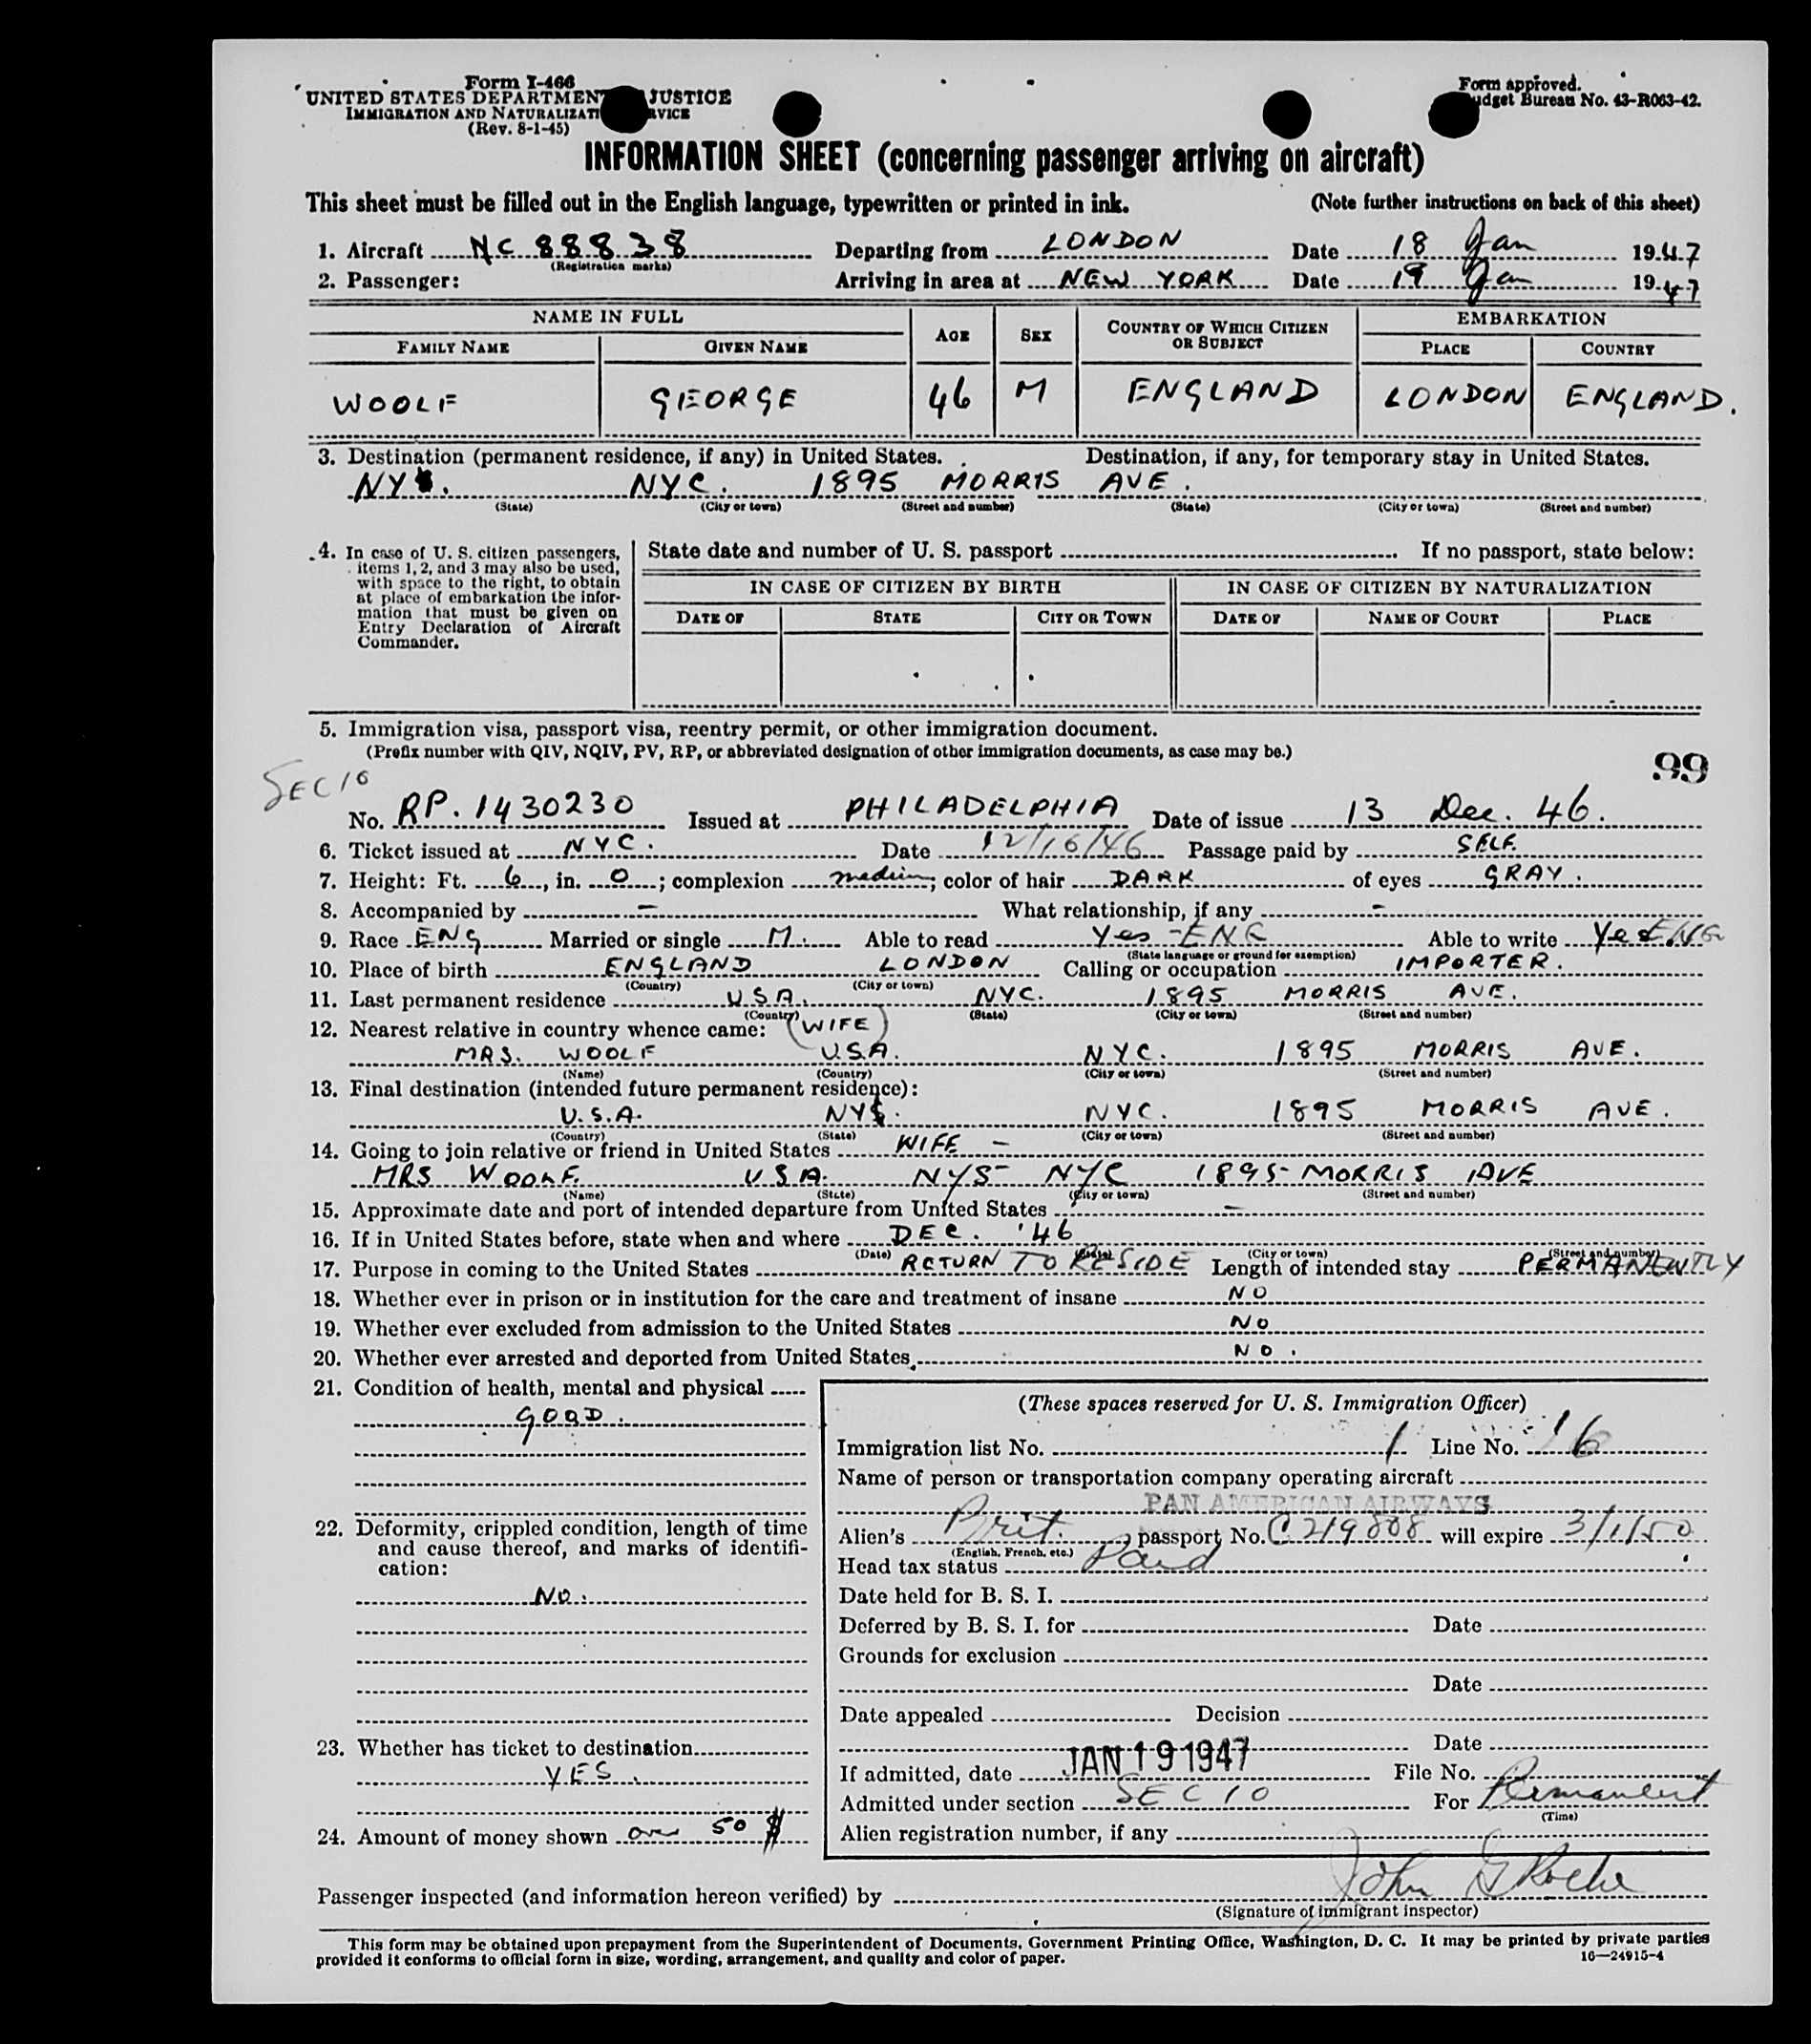 Form I-466
UNITED STATES DEPARTMENT JUSTICE
IMMIGRATION AND NATURALIZATI RVICE
(Rev. 8-1-45)
Form approved.
udget Bureau No. 43-R063-42.
INFORMATION SHEET (concerning passenger arriving on aircraft)
This sheet must be filled out in the English language, typewritten or printed in ink. (Note further instructions on back of this sheet)
1. Aircraft NC 88838 Departing from LONDON Date 18 Jan 1947
(Registration marks)
2. Passenger: Arriving in area at NEW YORK Date 19 Jan 1947
NAME IN FULL AGE SEX COUNTRY OF WHICH CITIZEN OR SUBJECT EMBARKATION
FAMILY NAME GIVEN NAME PLACE COUNTRY
WOOLF GEORGE 46 M ENGLAND LONDON ENGLAND.
3. Destination (permanent residence, if any) in United States. Destination, if any, for temporary stay in United States.
NYS. NYC. 1895 MORRIS AVE.
(State) (City or town) (Street and number) (State) (City or town) (Street and number)
4. In case of U. S. citizen passengers, items 1, 2, and 3 may also be used, with space to the right, to obtain at place of embarkation the infor-
mation that must be given on Entry Declaration of Aircraft Commander.
State date and number of U. S. passport If no passport, state below:
IN CASE OF CITIZEN BY BIRTH IN CASE OF CITIZEN BY NATURALIZATION
DATE OF STATE CITY OR TOWN DATE OF NAME OF COURT PLACE
5. Immigration visa, passport visa, reentry permit, or other immigration document.
(Prefix number with QIV, NQIV, PV, RP, or abbreviated designation of other immigration documents, as case may be.)
99
SEC 10
No. RP. 1430230 Issued at PHILADELPHIA Date of issue 13 Dec. 46.
6. Ticket issued at NYC. Date 12/16/46 Passage paid by SELF.
7. Height: Ft. 6, in. 0; complexion medium; color of hair DARK of eyes GRAY.
8. Accompanied by - What relationship, if any -
9. Race ENG Married or single M. Able to read Yes - ENG Able to write Yes ENG
(State language or ground for exemption)
10. Place of birth ENGLAND LONDON Calling or occupation IMPORTER.
(Country) (City or town)
11. Last permanent residence U.S.A. NYC. 1895 MORRIS AVE.
(Country) (State) (City or town) (Street and number)
12. Nearest relative in country whence came: (WIFE)
MRS. WOOLF U.S.A. NYC. 1895 MORRIS AVE.
(Name) (Country) (City or town) (Street and number)
13. Final destination (intended future permanent residence):
U.S.A. NYS. NYC. 1895 MORRIS AVE.
(Country) (State) (City or town) (Street and number)
14. Going to join relative or friend in United States WIFE -
MRS WOOLF. USA. NYS - NYC 1895 - MORRIS AVE
(Name) (State) (City or town) (Street and number)
15. Approximate date and port of intended departure from United States -
16. If in United States before, state when and where DEC. '46
(Date) (City or town) (Street and number)
17. Purpose in coming to the United States RETURN TO RESIDE Length of intended stay PERMANENTLY
18. Whether ever in prison or in institution for the care and treatment of insane NO
19. Whether ever excluded from admission to the United States NO
20. Whether ever arrested and deported from United States NO.
21. Condition of health, mental and physical
GOOD.
22. Deformity, crippled condition, length of time and cause thereof, and marks of identifi-
cation:
NO.
23. Whether has ticket to destination
YES.
24. Amount of money shown over 50 $
(These spaces reserved for U. S. Immigration Officer)
Immigration list No. 1 Line No. 16
Name of person or transportation company operating aircraft
PAN AMERICAN AIRWAYS
Alien's Brit. passport No. C 219808 will expire 3/1/50
(English, French, etc.)
Head tax status Paid
Date held for B. S. I.
Deferred by B. S. I. for Date
Grounds for exclusion
Date
Date appealed Decision
Date
If admitted, date JAN 19 1947 File No.
Admitted under section SEC 10 For Permanent
(Time)
Alien registration number, if any
Passenger inspected (and information hereon verified) by John G Roche
(Signature of immigrant inspector)
This form may be obtained upon prepayment from the Superintendent of Documents, Government Printing Office, Washington, D. C. It may be printed by private parties
provided it conforms to official form in size, wording, arrangement, and quality and color of paper. 16—24915-4